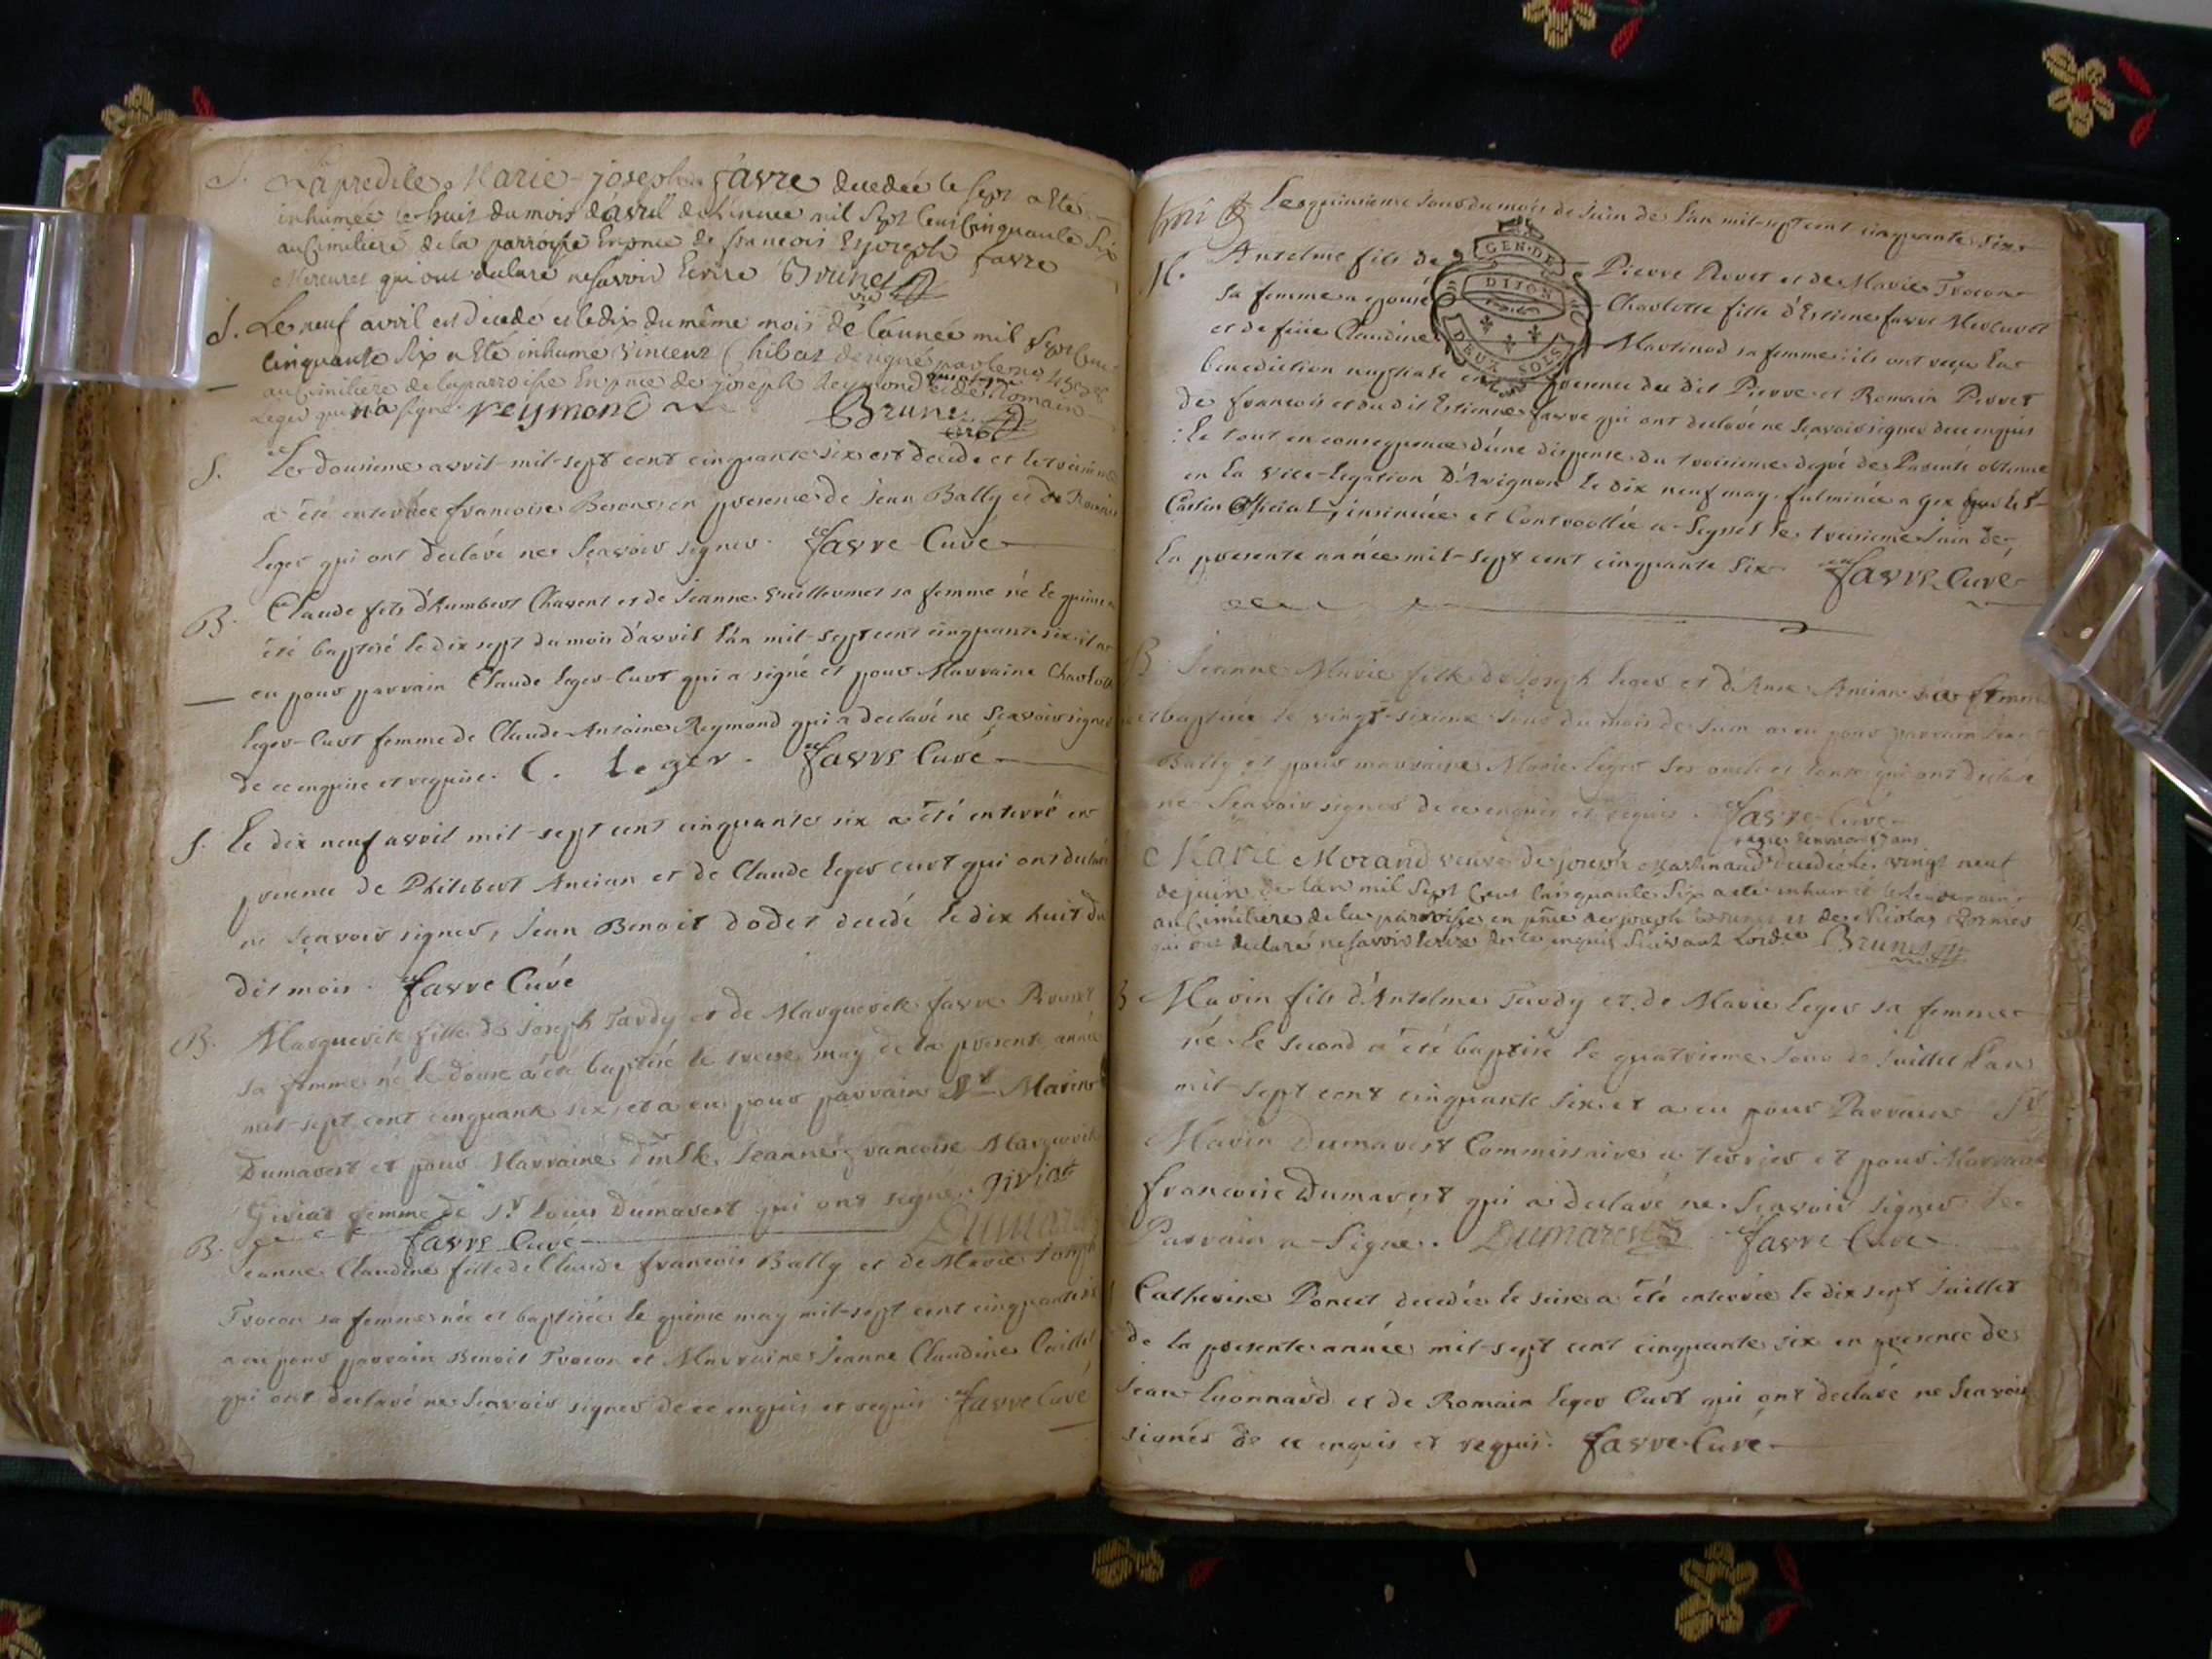 S. La predite Marie-joseph favre decedée le sept a été
inhumée le huit du mois d'avril de l'année mil sept cent cinquante six
au Cimetiere de la parroisse en pnce de francois et joseph favre
Mercuret qui ont declaré ne savoir Ecrire Brunet
vic
S. Le neuf avril est decedé et le dix du même mois de l'année mil sept cent
cinquante six a été inhumé vincent Chibat designé par le no
au Cimetiere de la parroisse en pnce de joseph Reymond et de Romain
Leger qui n'a signé. reymond Brunet
S. Le dousieme avril mil-sept cent cinquante six est decedé et le treisieme
a été enterrée francoise Besons en presence de Jean Bally et de Romain
leger qui ont declaré ne scavoir signer. favre Curé
B. Claude fils d'Humbert Chavent et de Jeanne vuilleumet sa femme né le quinse a
été baptisé le dix sept du mois d'avril l'an mil-sept cent cinquante six il a
eu pour parrain Claude leger-Curt qui a signé et pour Marraine Charlotte
leger-Curt femme de Claude Antoine Reymond qui a declaré ne scavoir signer
de ce enquise et requise. C. leger. favre Curé
S. Le dix neuf avril mil-sept cent cinquante six a été enterré en
presence de Philibert Ancian et de Claude leger curt qui ont declaré
ne scavoir signer, Jean Benoit Dodet decedé le dix huit du
dit mois. favre Curé
B. Marguerite fille de Joseph Tardy et de Marguerite favre Brunet
sa femme né le douse a été baptisé le treise may de la presente année
mil-sept cent cinquante six, et a eu pour parrain Sr Marin
Dumarest et pour Marraine dmlle Jeanne francoise Marguerite
Giviat femme de Sr Louis Dumarest qui ont signé. Giviat
favre Curé Dumarest
B. Jeanne Claudine fille de Claude francois Bally et de Marie Joseph
Trocon sa femme née et baptisée le quinse may mil-sept cent cinquante six
a eu pour parrain Benoit Trocon et Marraine Jeanne Claudine Caillet
qui ont declaré ne scavoir signer de ce enquis et requis. favre Curé
Le quinsieme Jour du mois de Juin de l'an mil-sept cent cinquante six
M. Antelme fils de Pierre Pivet et de Marie Trocon
sa femme a epousé Charlotte fille d'Estiene favre Mercuret
et de feue Claudine Martinod sa femme: ils ont reçu la
benediction nuptiale en presence du dit Pierre et Romain Pivet
de francois et du dit Estienne favre qui ont declaré ne scavoir signer de ce enquis
: le tout en consequence d'une dispense du troisieme degré de Parenté obtenue
en la vice-legation D'Avignon le dix neuf may. fulminée a Gex par le Sr
Castin Official, insinuée et Controollée a Seyssel le treisieme Juin de
la presente année mil-sept cent cinquante six favre Curé
GEN. DE
DIJON
DEUX SOLS
B. Jeanne Marie fille de Joseph leger et d'Anne Ancian sa femme
née et baptisée le vingt-sixieme Jour du mois de Juin a eu pour parrain Jean
Bally et pour marraine Marie leger ses oncle et tante qui ont declaré
ne scavoir signer de ce enquis et requis. favre Curé
agée d'environ ans
Marie Morand veuve de joseph Martinaud decedée le vingt neuf
de juin de l'an mil sept cent cinquante six a été inhumée le lendemain
au Cimetiere de la parroisse en pnce de joseph Brunet et de Nicolas
qui ont declaré ne savoir Ecrire de ce enquis suivant l'ord.ce Brunet
B Marin fils d'Antelme Tardy et de Marie leger sa femme
né le second a été baptisé le quatrieme Jour de Juillet l'an
mil-sept cent cinquante six et a eu pour Parrain Sr
Marin Dumarest Commissaire a terrier et pour Marraine
francoise Dumarest qui a declaré ne scavoir signer le
Parrain a Signé. Dumarest favre Curé
Catherine Poncet decedée le seise a été enterrée le dix sept Juillet
de la presente année mil-sept cent cinquante six en presence de
Jean Luonnard et de Romain leger Curt qui ont declaré ne scavoir
signés de ce enquis et requis. favre Curé